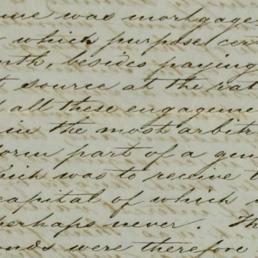 was mortgage
which purpose cer
besides paying
source at the rat
all these engageme
in the most arbitr
form part of a gen
which was to receive
capital of which
perhaps never. Th
were therefore